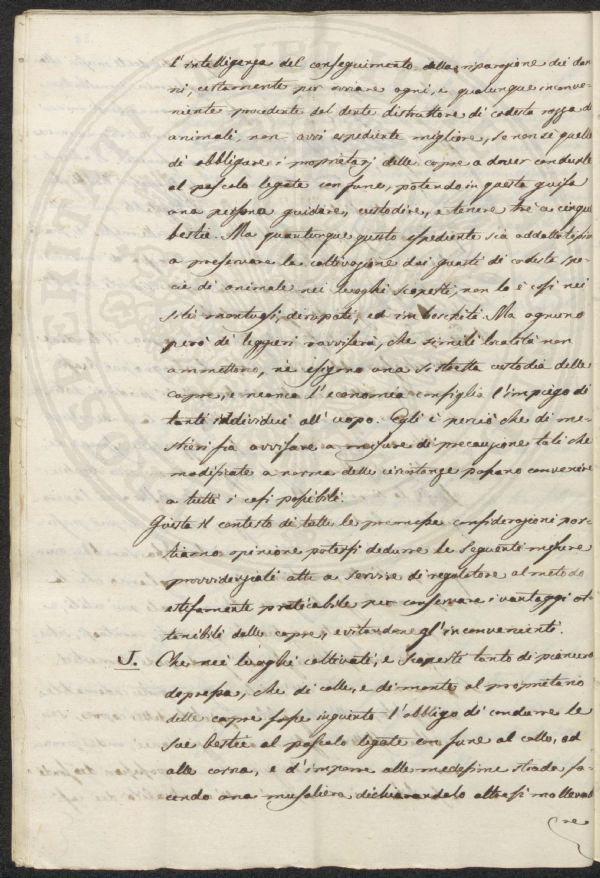 l'intelligenza del conseguimento della riparazione dei dan
ni, certamente per ovviare ogni, e qualunque inconve-
niente procedente dal dente distruttore di codesta razza di
animali, non avvi espediente migliore, se non se quello
di obbligare i proprietarj delle capre a dover condurle
al pascolo legate con fune, potendo in questa guisa
una persona guidare, custodire, e tenere tre a cinque
bestie. Ma quantunque questo espediente sia addattatissimo
a preservare la coltivazione dai guasti di codeste spe-
cie di animale nei luoghi scoperti, non lo è così nei
siti montuosi, dirupati, ed imboschiti. Ma ognuno
però di leggieri ravviserà, che simili località non
ammettono, nè esigono una sì stretta custodia delle
capre, e neanco l'economia consiglia l'impiego di
tanti individui all'uopo. Egli è perciò che di me-
stieri fia avvisare a misure di precauzione tali che
modificate a norma delle circostanze possano convenire
a tutti i casi possibili.
Giusta il contesto di tutte le premesse considerazioni por-
tiamo opinione potersi dedurre le seguenti misure
provvidenziali atte a servire di regolatore al metodo
estesamente praticabile per conservare i vantaggi ot-
tenibili dalle capre, evitandone gl'inconvenienti.
I. Che nei luoghi coltivati, e scoperti tanto di pianura
depressa, che di colle, e di monte al proprietario
delle capre fosse ingiunto l'obbligo di condurre le
sue bestie al pascolo legate con fune al collo, od
alle corna, e d'imporre alle medesime strada fa-
cendo una musoliera, dichiarandolo altresì mallevad
re